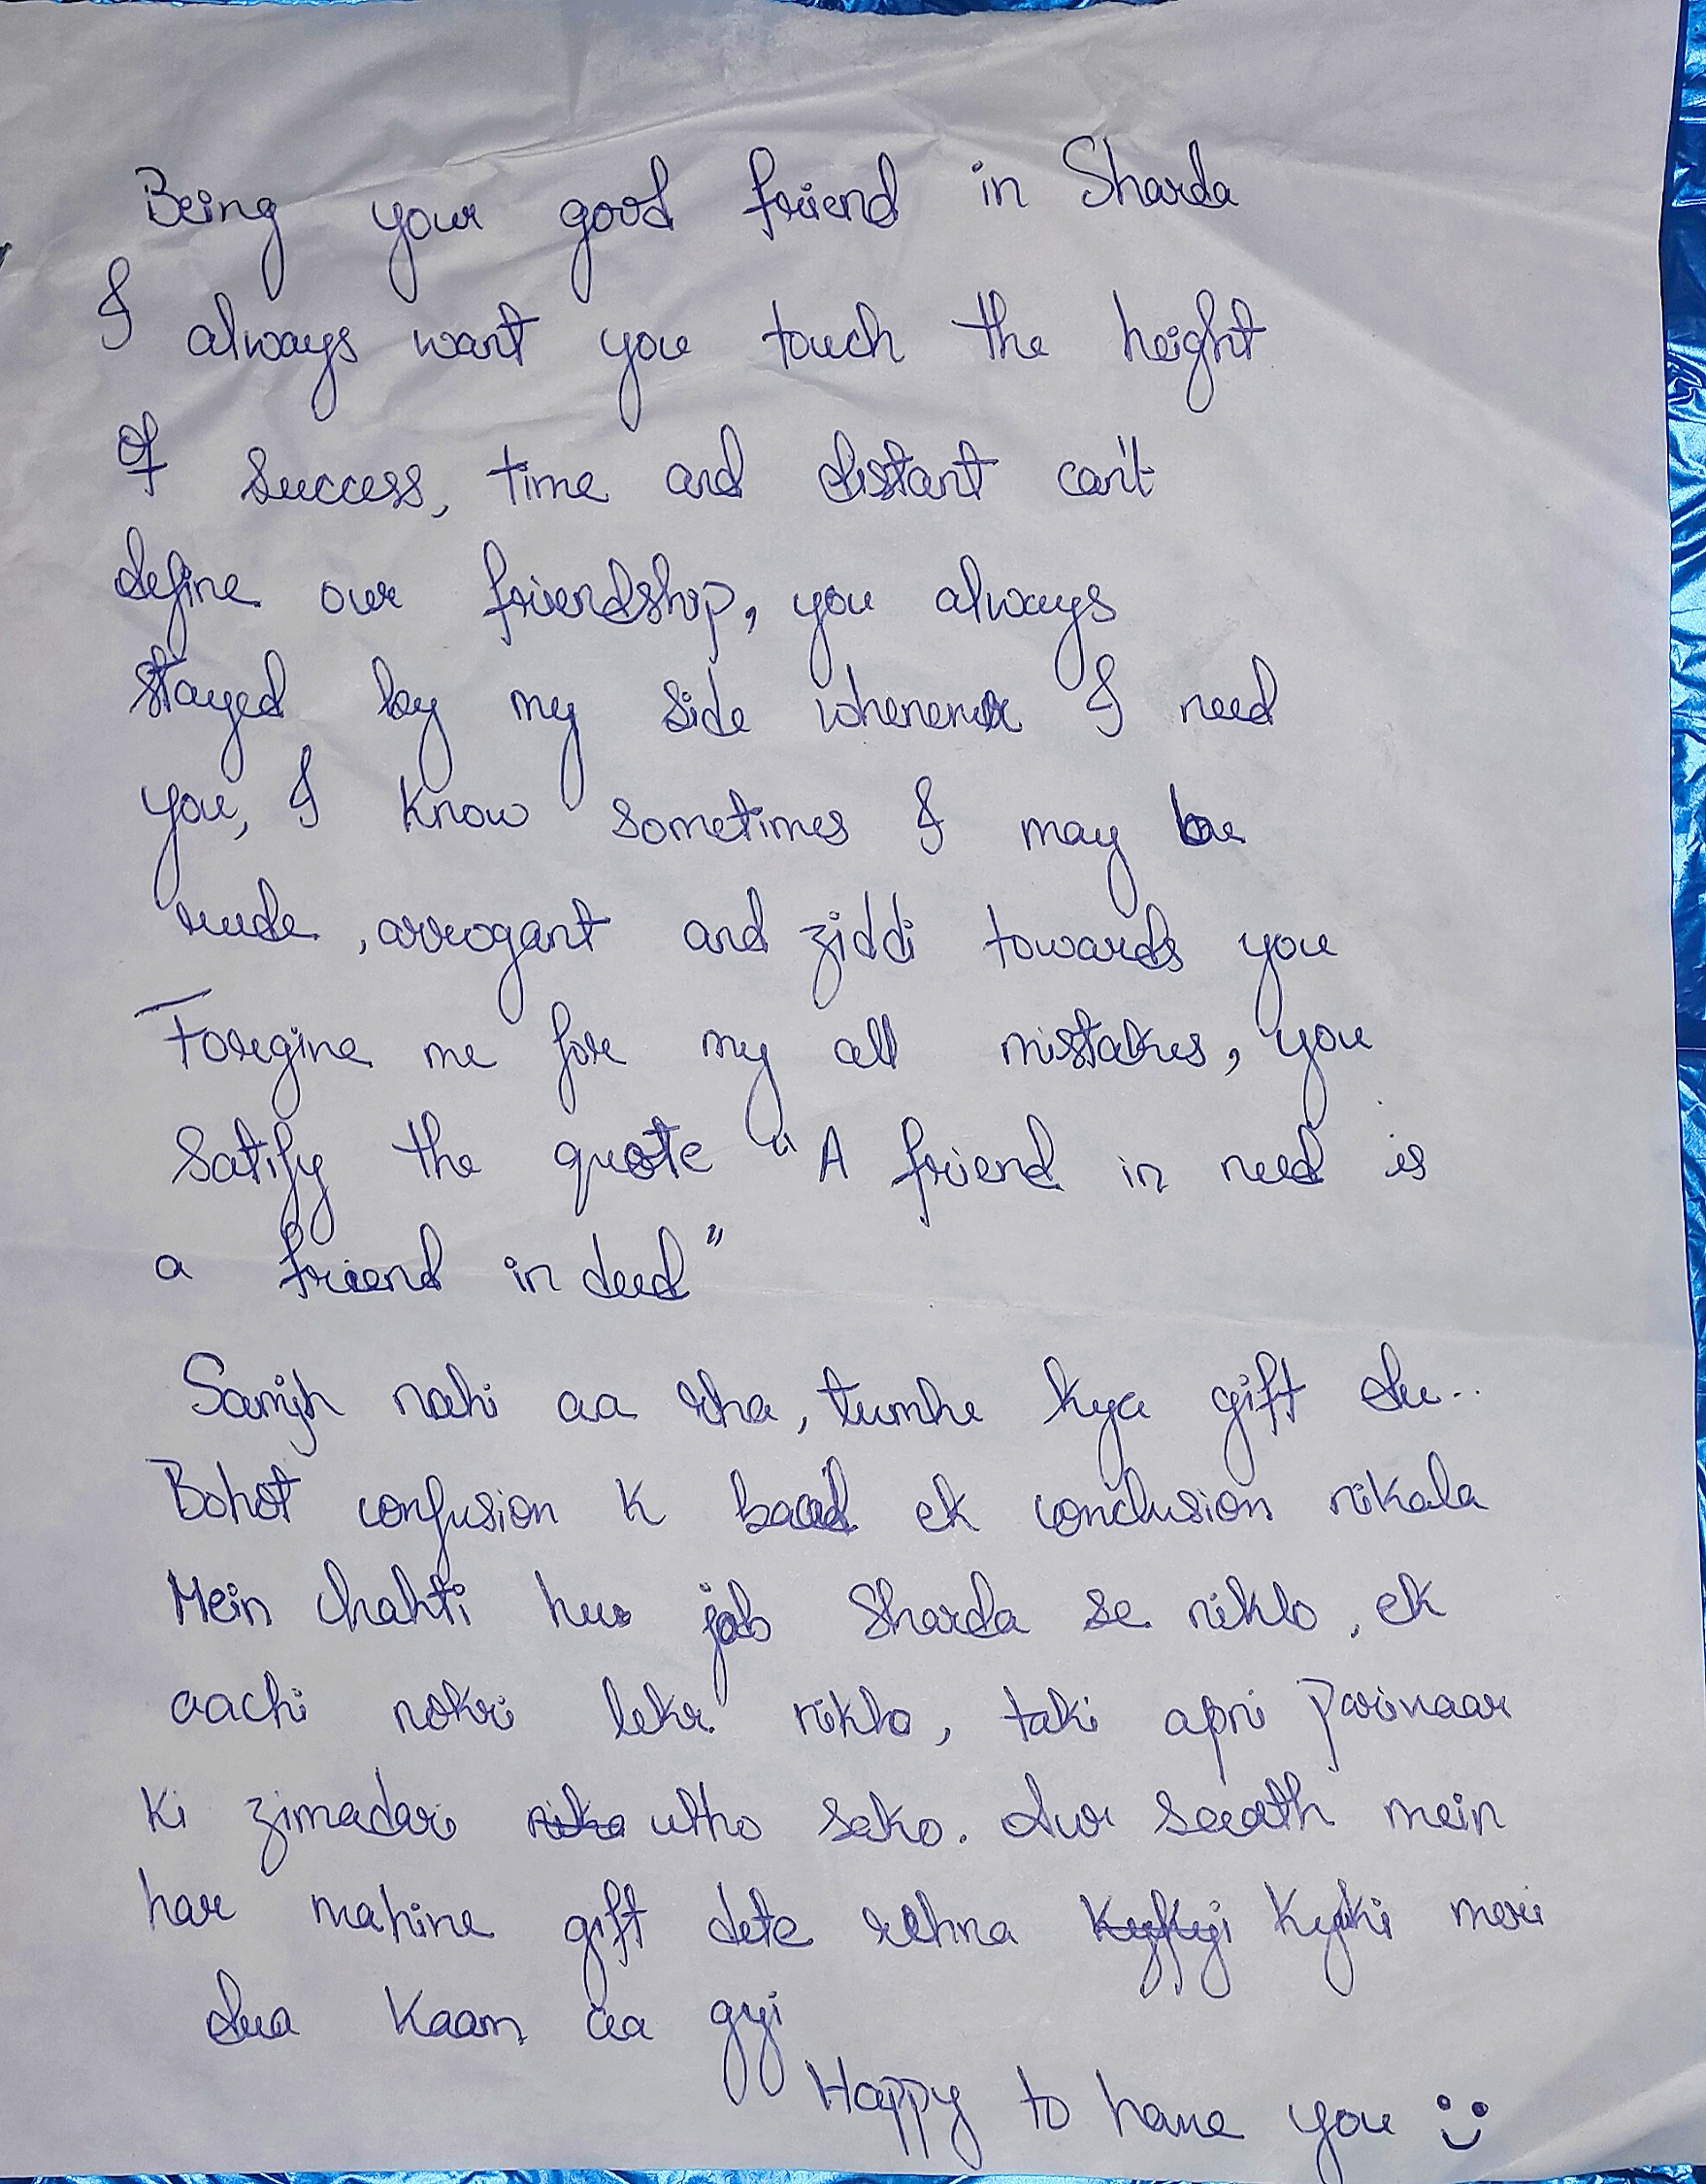 Being your good friend in Sharda
I always want you touch the height
Of success, time and distant can't
define our friendship, you always
stayed by my side whenever I need
you, I know sometimes I may be
rude, arrogant and ziddi towards you
Foregive me for my all mistakes, you
satify the quote "A friend in need is
a friend in deed"
Samjh nahi aa rha, tumhe kya gift du..
Bohot confusion K baad ek conclusion nikala
Mein chahti hu jab Sharda se niklo, ek
aachi nokri lekr niklo, taki apni parivaar
Ki zimadari utho sako. Aur saath mein
har mahine gift dete rehna kyuki meri
dua Kaam aa gyi
Happy to have you :)